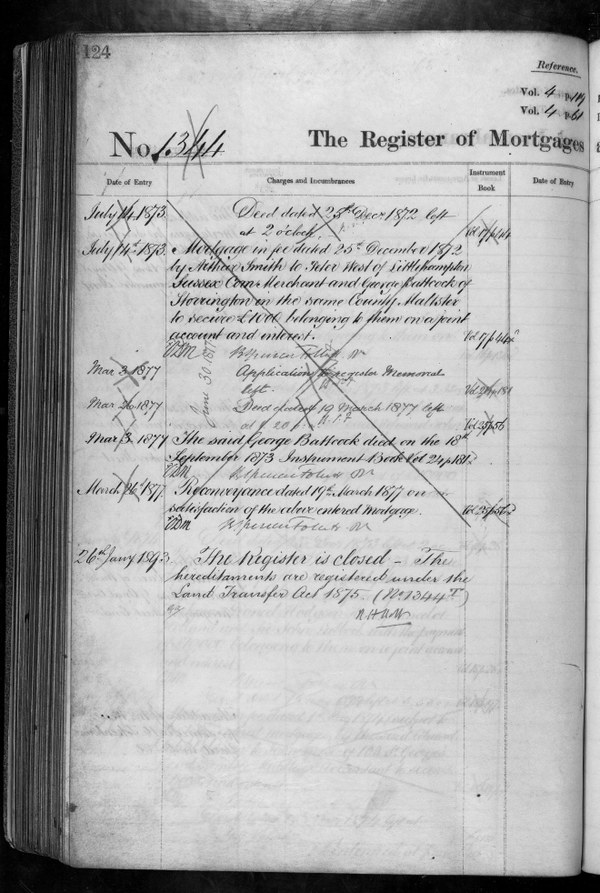 124
Reference.
Vol. 4 p. 119
Vol. 4 p. 61
No. 1344 The Register of Mortgages
Date of Entry Charges and Incumbrances Instrument Book Date of Entry
July 14. 1873. Deed dated 25th Decr. 1872 left
at 2 o'clock. Vol 17 p 44
July 14th 1873. Mortgage in fee dated 25th December 1872
by Arthur Smith to Peter West of Littlehampton
Sussex Corn Merchant and George Battcock of
Storrington in the same County Maltster
to secure £1000 belonging to them on a joint
account and interest. Vol 17 p 44
June 30 1877
Mar 3 1877 Application to register Memorial
left. Vol 24 p 181
Mar 26 1877 Deed dated 19 March 1877 left
at Vol 25 p 56
Mar 3 1877 The said George Battcock died on the 18th
September 1873 Instrument Book Vol 24 p 181
March 26th 1877. Reconveyance dated 19th March 1877 on
satisfaction of the above entered Mortgage. Vol 25 p 56
26th Jany 1893. The Register is closed – The
hereditaments are registered under the
Land Transfer Act 1875. (No. 1344 T)